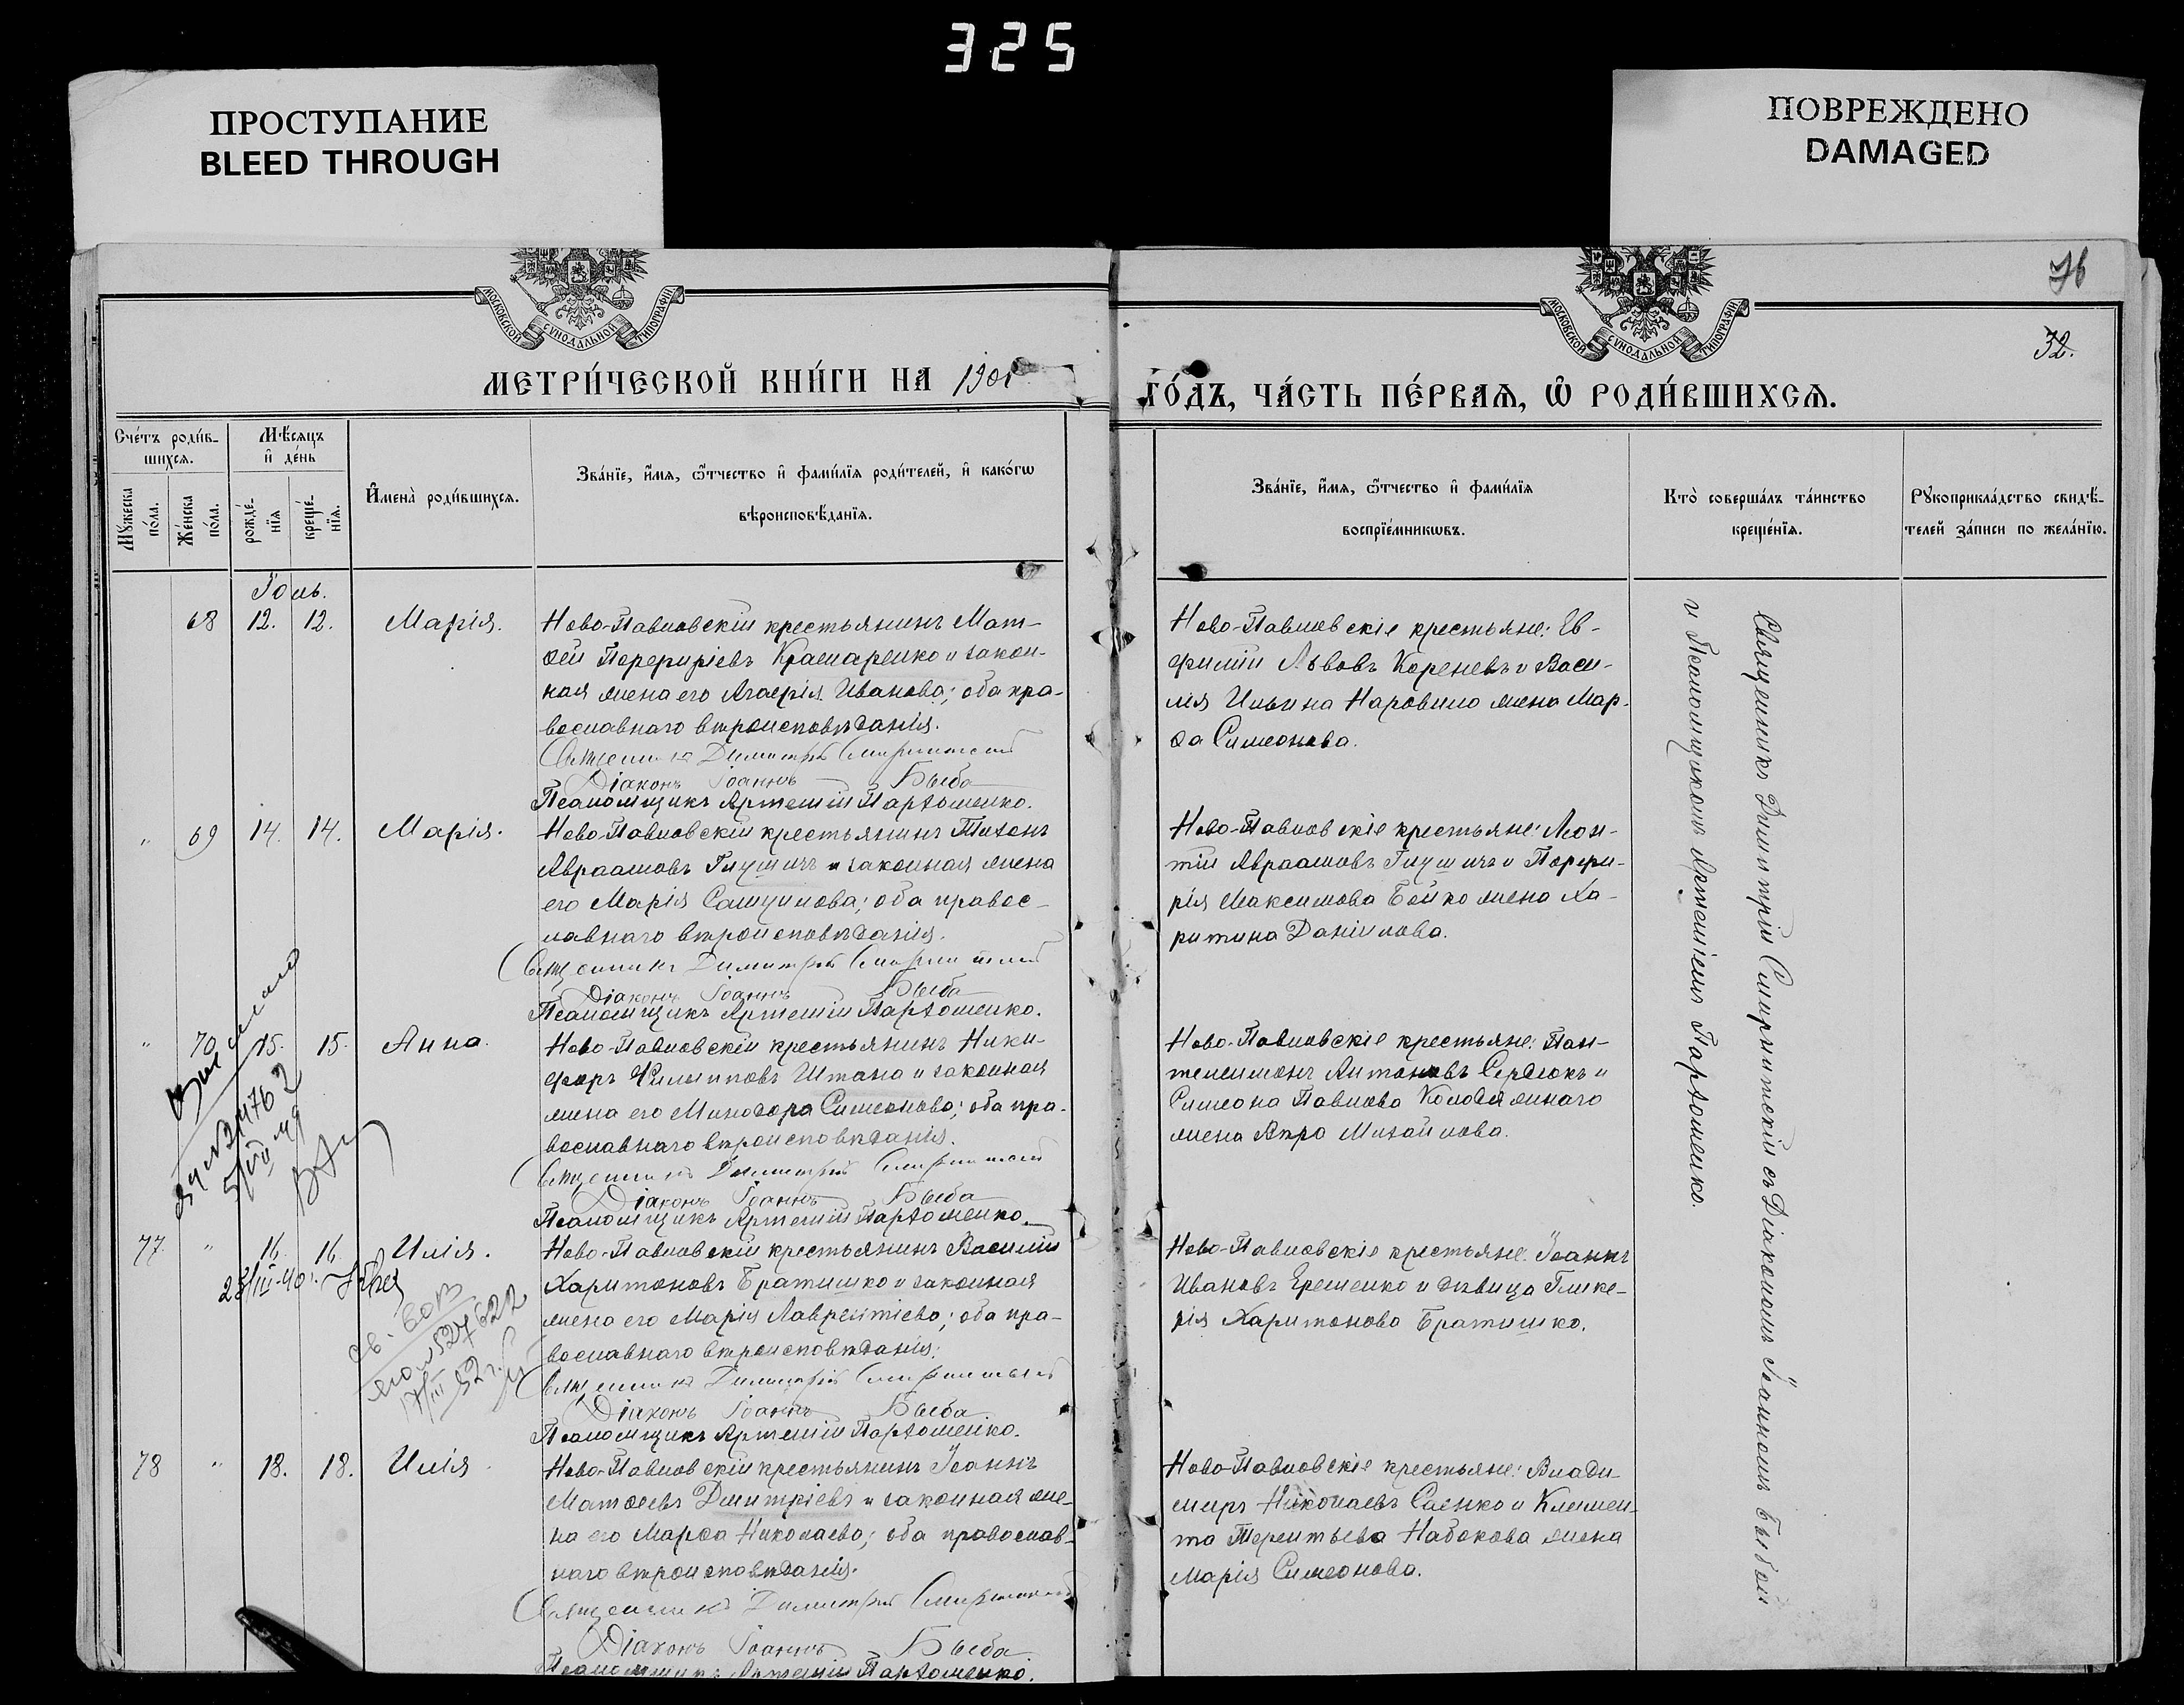 325
ПРОСТУПАНИЕ
BLEED THROUGH
ПОВРЕЖДЕНО
DAMAGED
76
32.
МОСКОВСКОЙ СѴНОДАЛЬНОЙ ТИПОГРАФІИ
МОСКОВСКОЙ СѴНОДАЛЬНОЙ ТИПОГРАФІИ
МЕТРИ́ЧЕСКОЙ КНИ́ГИ НА 1901
ГО́ДЪ, ЧА́СТЬ ПЕ́РВАѦ, Ѡ҆ РОДИ́ВШИХСѦ.
Сче́тъ роди́в-
шихсѧ.
Мѣ́сѧцъ
и҆ де́нь
Мꙋ́жеска
по́ла.
Же́нска
по́ла.
рожде́-
нїѧ
креще́-
нїѧ.
И҆мена̀ роди́вшихсѧ.
Зва́нїе, и҆́мѧ, ѻ҆́тчество и҆ фами́лїѧ роди́телей, и҆ како́гѡ
вѣроисповѣ́данїѧ.
Зва́нїе, и҆́мѧ, ѻ҆́тчество и҆ фами́лїѧ
воспрїе́мникѡвъ.
Кто̀ соверша́лъ та́инство
креще́нїѧ.
Рꙋкоприкла́дство свидѣ́-
телей за́писи по жела́нїю.
Іюль.
68 12. 12. Марія.
Ново-Павловскій крестьянинъ Мат-
ѳей Порфиріевъ Крамаренко и закон-
ная жена его Агафія Иванова; оба пра-
вославнаго вѣроисповѣданія.
Священникъ Димитрій Смирнитскій
Діаконъ Іоаннъ Быба
Псаломщикъ Артемій Пархоменко.
Ново-Павловскіе крестьяне: Ев-
фимій Львовъ Кореневъ и Васи-
лія Ильина Наровило жена Мар-
ѳа Симеонова.
" 69 14. 14. Марія.
Ново-Павловскій крестьянинъ Тихонъ
Авраамовъ Глушичъ и законная жена
его Марія Самуилова; оба правос-
лавнаго вѣроисповѣданія.
Священникъ Димитрій Смирнитскій
Діаконъ Іоаннъ Быба
Псаломщикъ Артемій Пархоменко.
Ново-Павловскіе крестьяне: Леон-
тій Авраамовъ Глушичъ и Порфи-
рія Максимова Бойко жена Ха-
ритина Даніилова.
" 70 15. 15. Анна.
Ново-Павловскій крестьянинъ Ники-
форъ Филипповъ Штана и законная
жена его Минодора Симеонова; оба пра-
вославнаго вѣроисповѣданія.
Священникъ Димитрій Смирнитскій
Діаконъ Іоаннъ Быба
Псаломщикъ Артемій Пархоменко.
Ново-Павловскіе крестьяне: Пан-
телеимонъ Антоновъ Сердюкъ и
Симеона Павлова Колодяжнаго
жена Вѣра Михайлова.
77. " 16. 16. Илія.
Ново-Павловскій крестьянинъ Василій
Харитоновъ Братишко и законная
жена его Марія Лаврентіева; оба пра-
вославнаго вѣроисповѣданія.
Священникъ Димитрій Смирнитскій
Діаконъ Іоаннъ Быба
Псаломщикъ Артемій Пархоменко.
Ново-Павловскіе крестьяне: Іоаннъ
Ивановъ Еременко и дѣвица Глике-
рія Харитонова Братишко.
78 " 18. 18. Илія.
Ново-Павловскій крестьянинъ Іоаннъ
Матѳеевъ Дмитріевъ и законная же-
на его Марѳа Николаева; оба православ-
наго вѣроисповѣданія.
Священникъ Димитрій Смирнитскій
Діаконъ Іоаннъ Быба
Псаломщикъ Артемій Пархоменко.
Ново-Павловскіе крестьяне: Влади-
миръ Николаевъ Саенко и Климен-
та Терентьева Набокова жена
Марія Симеонова.
Священникъ Димитрій Смирнитскій съ Діакономъ Іоанномъ Быбой
и Псаломщикомъ Артеміемъ Пархоменко.